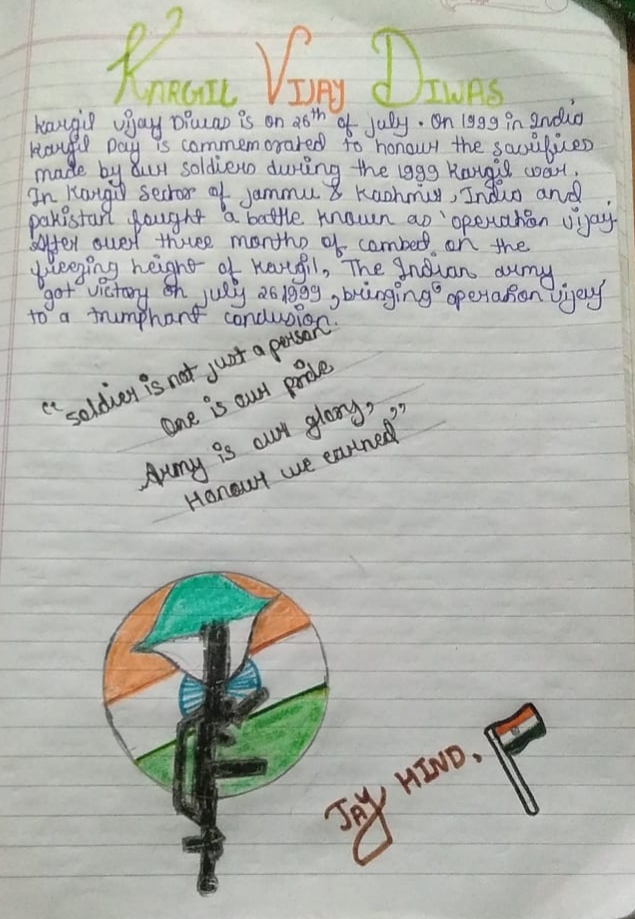 KARGIL VIJAY DIWAS
Kargil Vijay Diwas is on 26th of July. On 1999 in India
Kargil Day is commemorated to honour the sacrifices
made by our soldiers during the 1999 Kargil war.
In Kargil Sector of Jammu & Kashmir, India and
pakistan fought a battle known as 'operation vijay'
After over three months of combed on the
freezing height of Kargil, The Indian army
got victory on july 26 1999, bringing operation vijay
to a trumphant conclusion.
"soldier is not just a person
One is our pride
Army is our glory,
Honour we earned"
JAY HIND.